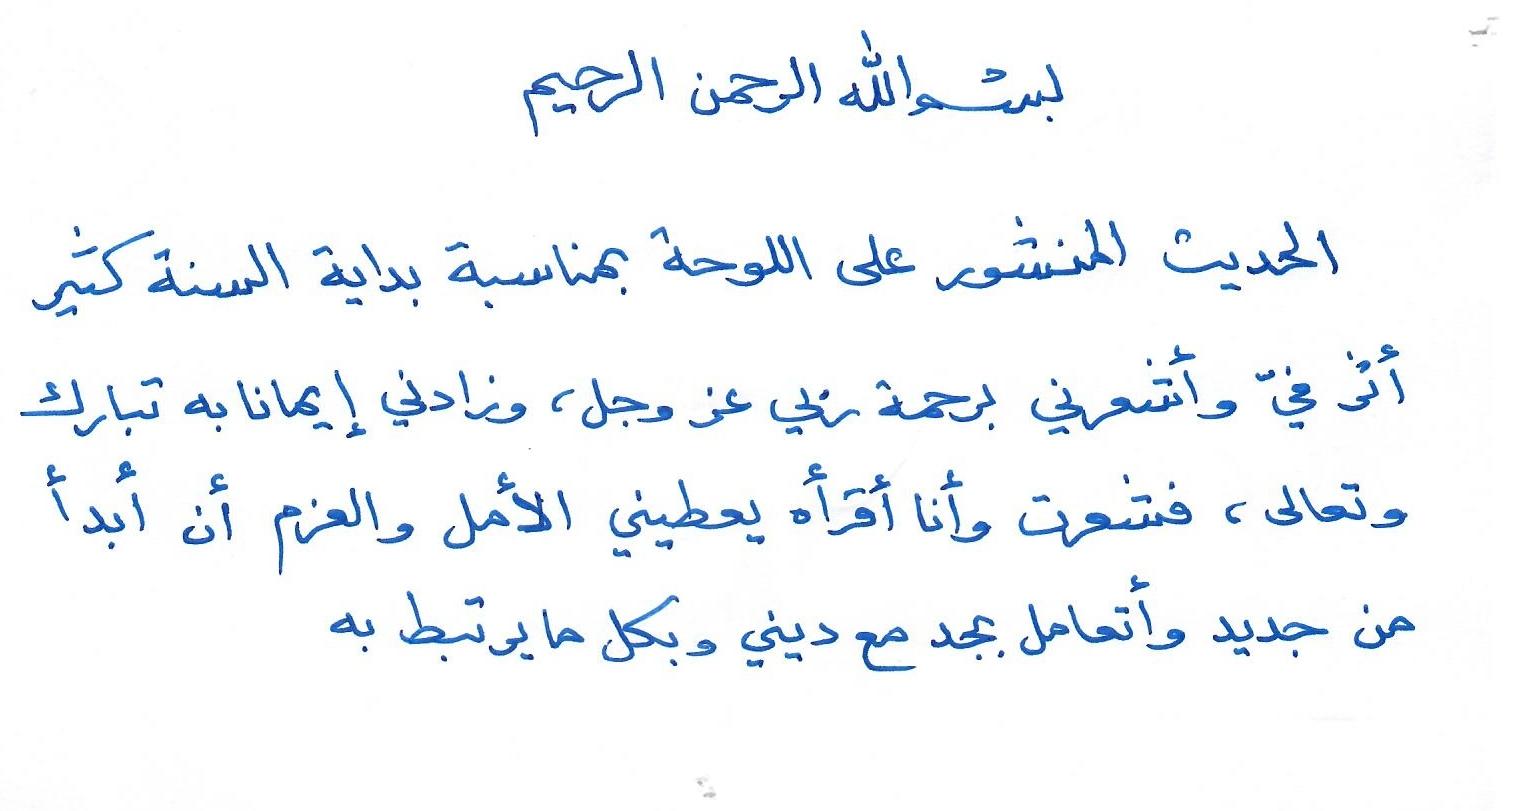 بسم الله الرحمن الرحيم
الحديث المنشور على اللوحة بمناسبة بداية السنة كثير
أثر فيّ وأشعرني برحمة ربي عز وجل، وزادني إيمانا به تبارك
وتعالى، فشعرت وأنا أقرأه يعطيني الأمل والعزم أن أبدأ
من جديد وأتعامل بجد مع ديني وبكل ما يرتبط به